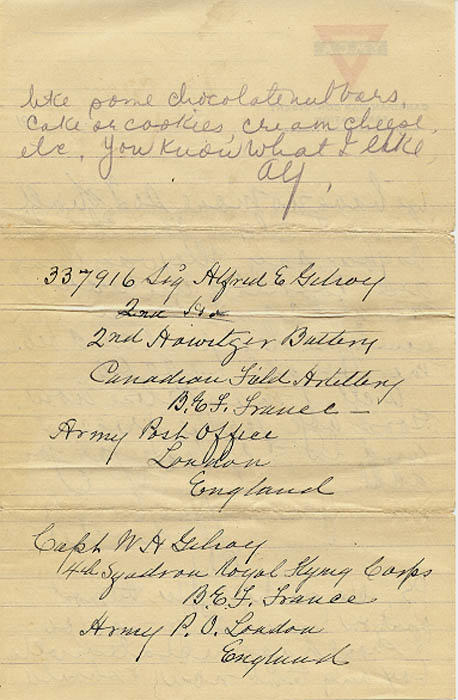 like some chocolate nut bars,
cake or cookies, cream cheese,
etc. You know what I like
Alf
337916 Sig Alfred E Gilroy
2nd
2nd Howitzer Battery
Canadian Field Artillery
B.E.F. France
Army Post Office
London
England
Capt W H Gilroy
4th Sqadron Royal Flying Corps
B.E.F. France
Army P.O. London
England